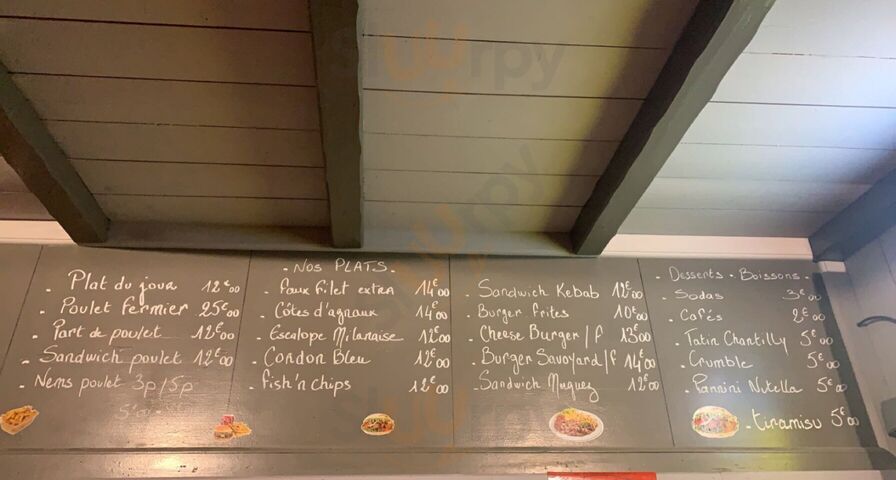 . Plat du jour 12€00
. Poulet fermier 25€00
. Part de poulet 12€00
. Sandwich poulet 12€00
. Nems poulet 3p/5p
5€00
. NOS PLATS .
. Faux filet extra 14€00
. Côtes d'agneaux 14€00
. Escalope Milanaise 12€00
. Cordon Bleu 12€00
. Fish'n chips 12€00
. Sandwich Kebab 12€00
. Burger frites 10€00
. Cheese Burger /f 13€00
. Burger Savoyard /f 14€00
. Sandwich Muguez 12€00
. Desserts . Boissons .
. Sodas 3€00
. Cafés 2€00
. Tatin Chantilly 5€00
. Crumble 5€00
. Pannini Nutella 5€00
. Tiramisu 5€00
Sluurpy
Sluurpy
Sluurpy
Sluurpy